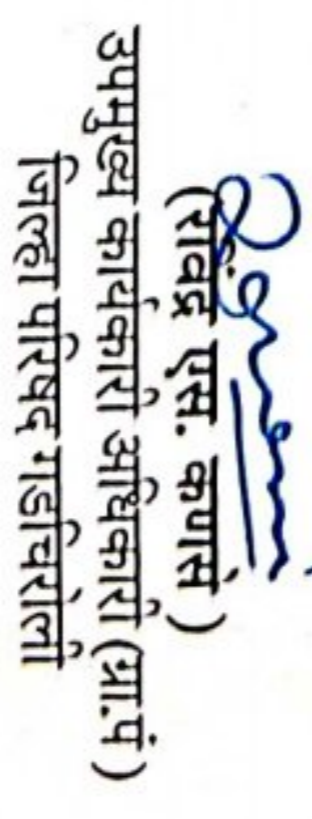 (रविंद्र एस. कणसे)
उपमुख्य कार्यकारी अधिकारी (ग्रा.पं)
जिल्हा परिषद गडचिरोली